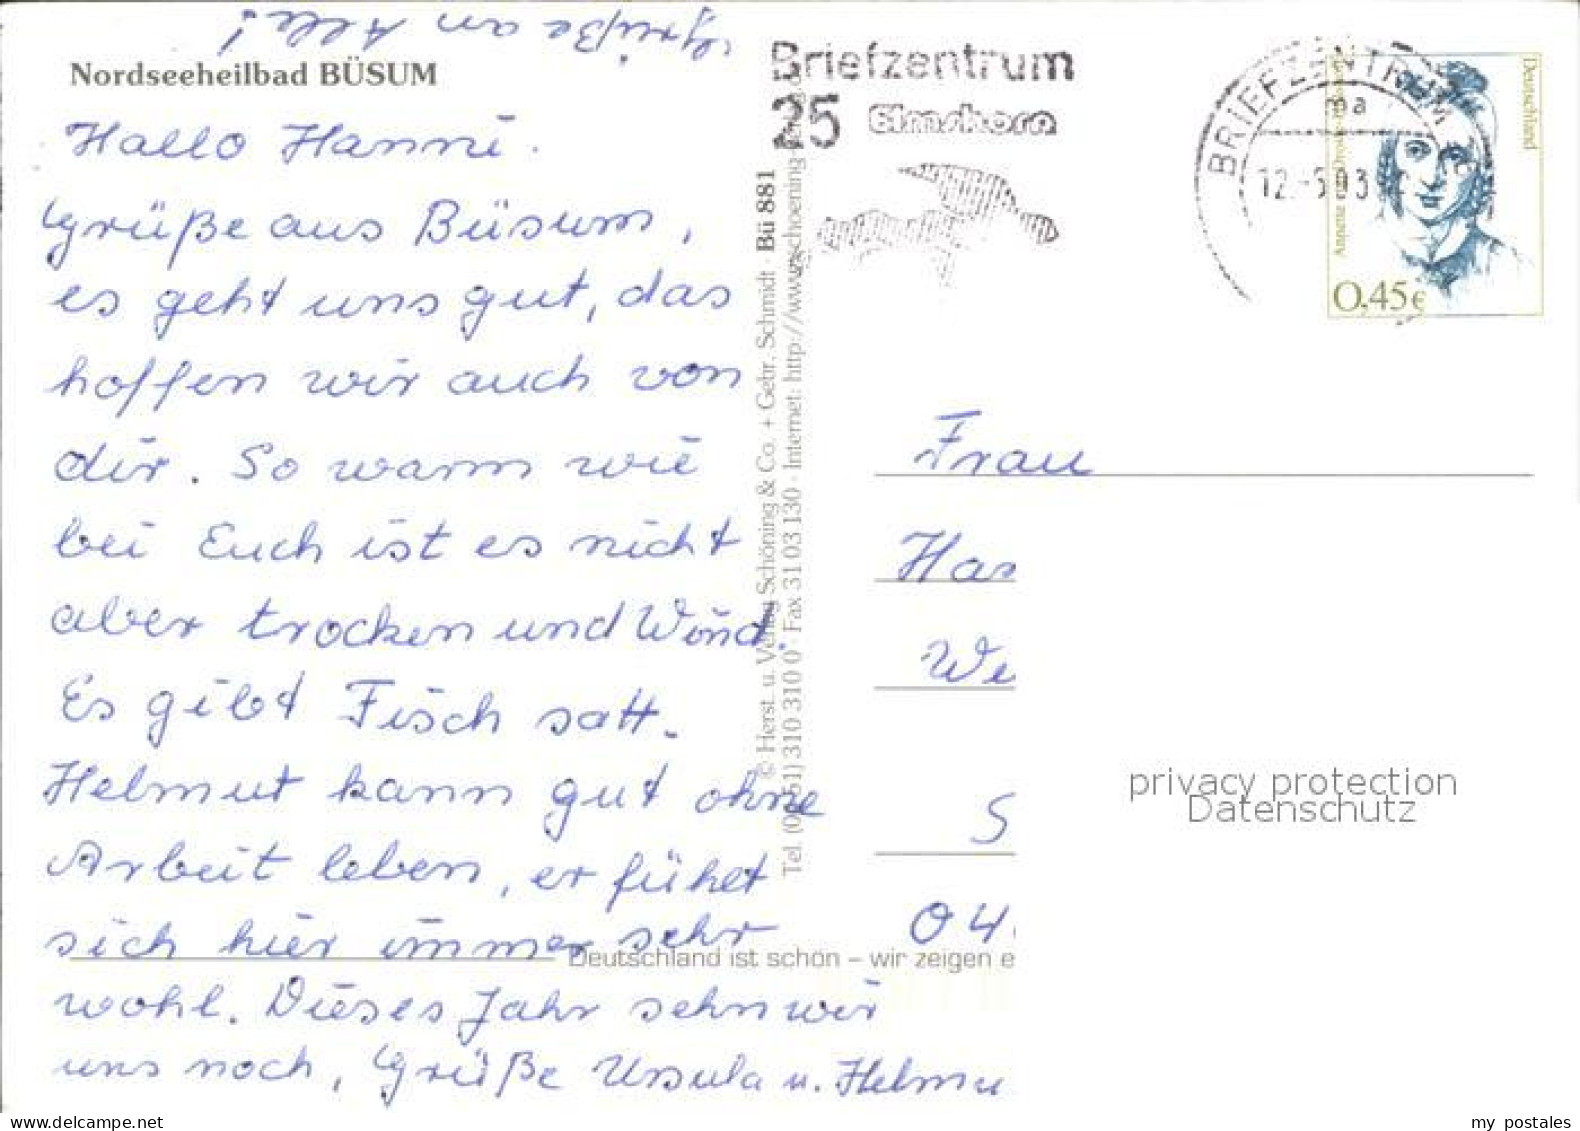 Grüße an Alle!
Nordseeheilbad BÜSUM
Hallo Hanni.
Grüße aus Büsum,
es geht uns gut, das
hoffen wir auch von
dir. So warm wie
bei Euch ist es nicht
aber trocken und Wind.
Es gibt Fisch satt.
Helmut kann gut ohne
Arbeit leben, er fühlt
sich hier immer sehr
wohl. Dieses Jahr sehn wir
uns noch, Grüße Ursula u. Helmu
Deutschland ist schön – wir zeigen e
© Herst. u. Verlag Schöning & Co. + Gebr. Schmidt · Bü 881
Tel. (0451) 310 310 0 · Fax 31 03 130 · Internet: http://www.schoening
Briefzentrum
25 Elmshorn
BRIEFZENTRUM
ma
Deutschland
0,45€
Frau
Han
We
S
04
privacy protection
Datenschutz
my postales